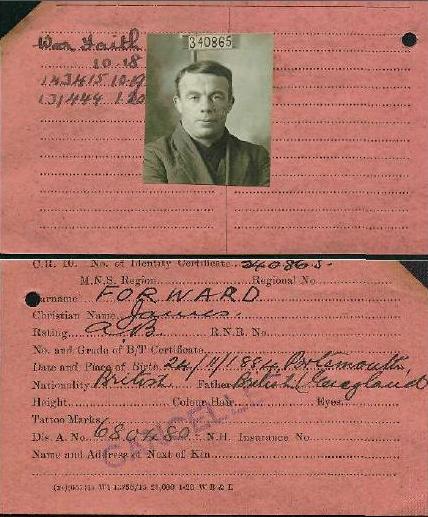 War Faith
340865
10.18
143415 10.19
131444 1.20
C.R. 10. No. of Identity Certificate. 340865.
M.N.S. Region Regional No
Surname FORWARD
Christian Name James.
Rating A.B R.N.R. No.
No. and Grade of B/T Certificate
Date and Place of Birth 24/11/1884 Portsmouth
Nationality British Father British England
Height Colour Hair Eyes
Tattoo Marks
Dis. A. No. 680480 N.H. Insurance No
Name and Address of Next of Kin
CANCELLED